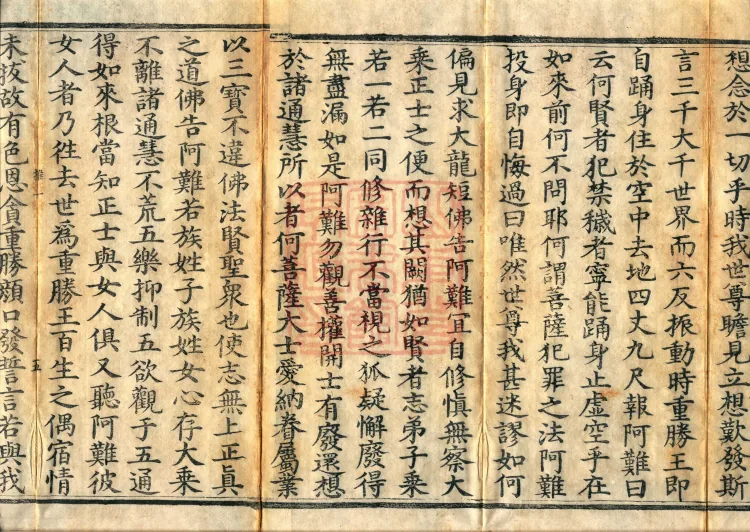 想念於一切乎時我世尊瞻見立想歎發斯
言三千大千世界而六反振動時重勝王即
自踊身住於空中去地四丈九尺報阿難曰
云何賢者犯禁穢者寧能踊身止虛空乎在
如來前何不問耶何謂菩薩犯罪之法阿難
投身即自悔過曰唯然世尊我甚迷謬如何
偏見求大龍短佛告阿難宜自修慎無察大
乘正士之便而想其闕猶如賢者志弟子乘
若一若二同修雜行不當視之狐疑懈廢得
無盡漏如是阿難勿觀善權開士有廢還想
於諸通慧所以者何菩薩大士愛納眷屬業
以三寶不違佛法賢聖眾也使志無上正真
之道佛告阿難若族姓子族姓女心存大乘
不離諸通慧不荒五樂抑制五欲觀子五通
得如來根當知正士與女人俱又聽阿難彼
女人者乃徃去世為重勝王百生之偶宿情
未拔故有色恩貪重勝顏口發誓言若與我
五